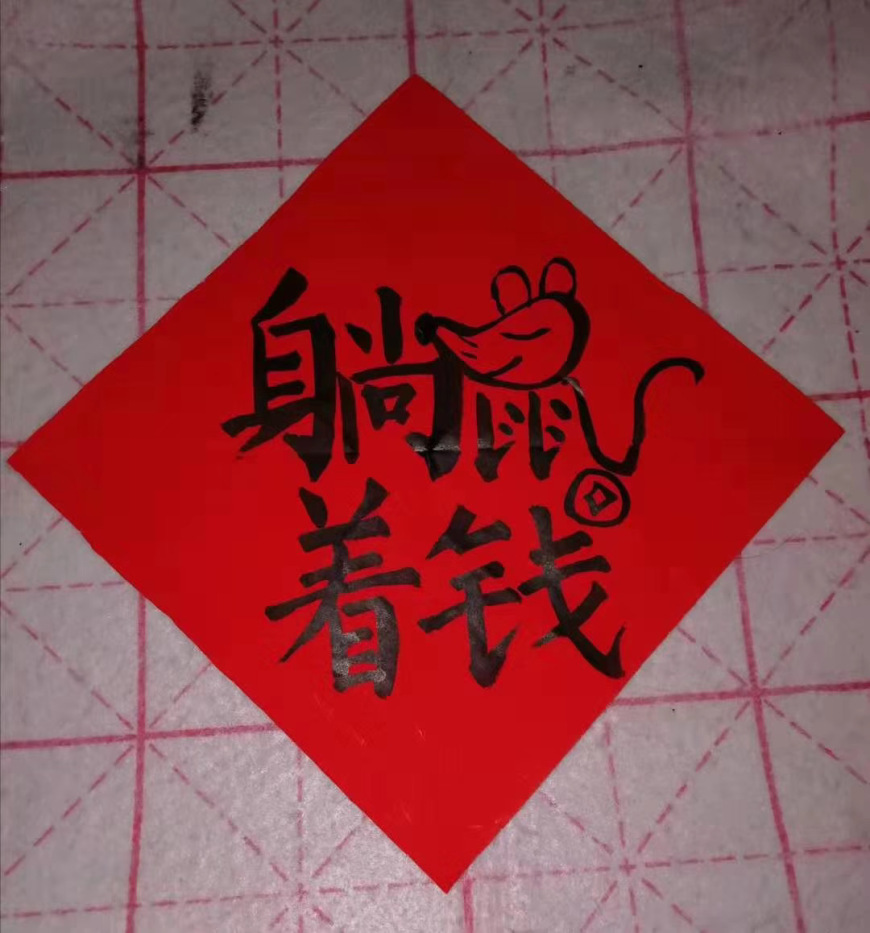 躺着
鼠钱